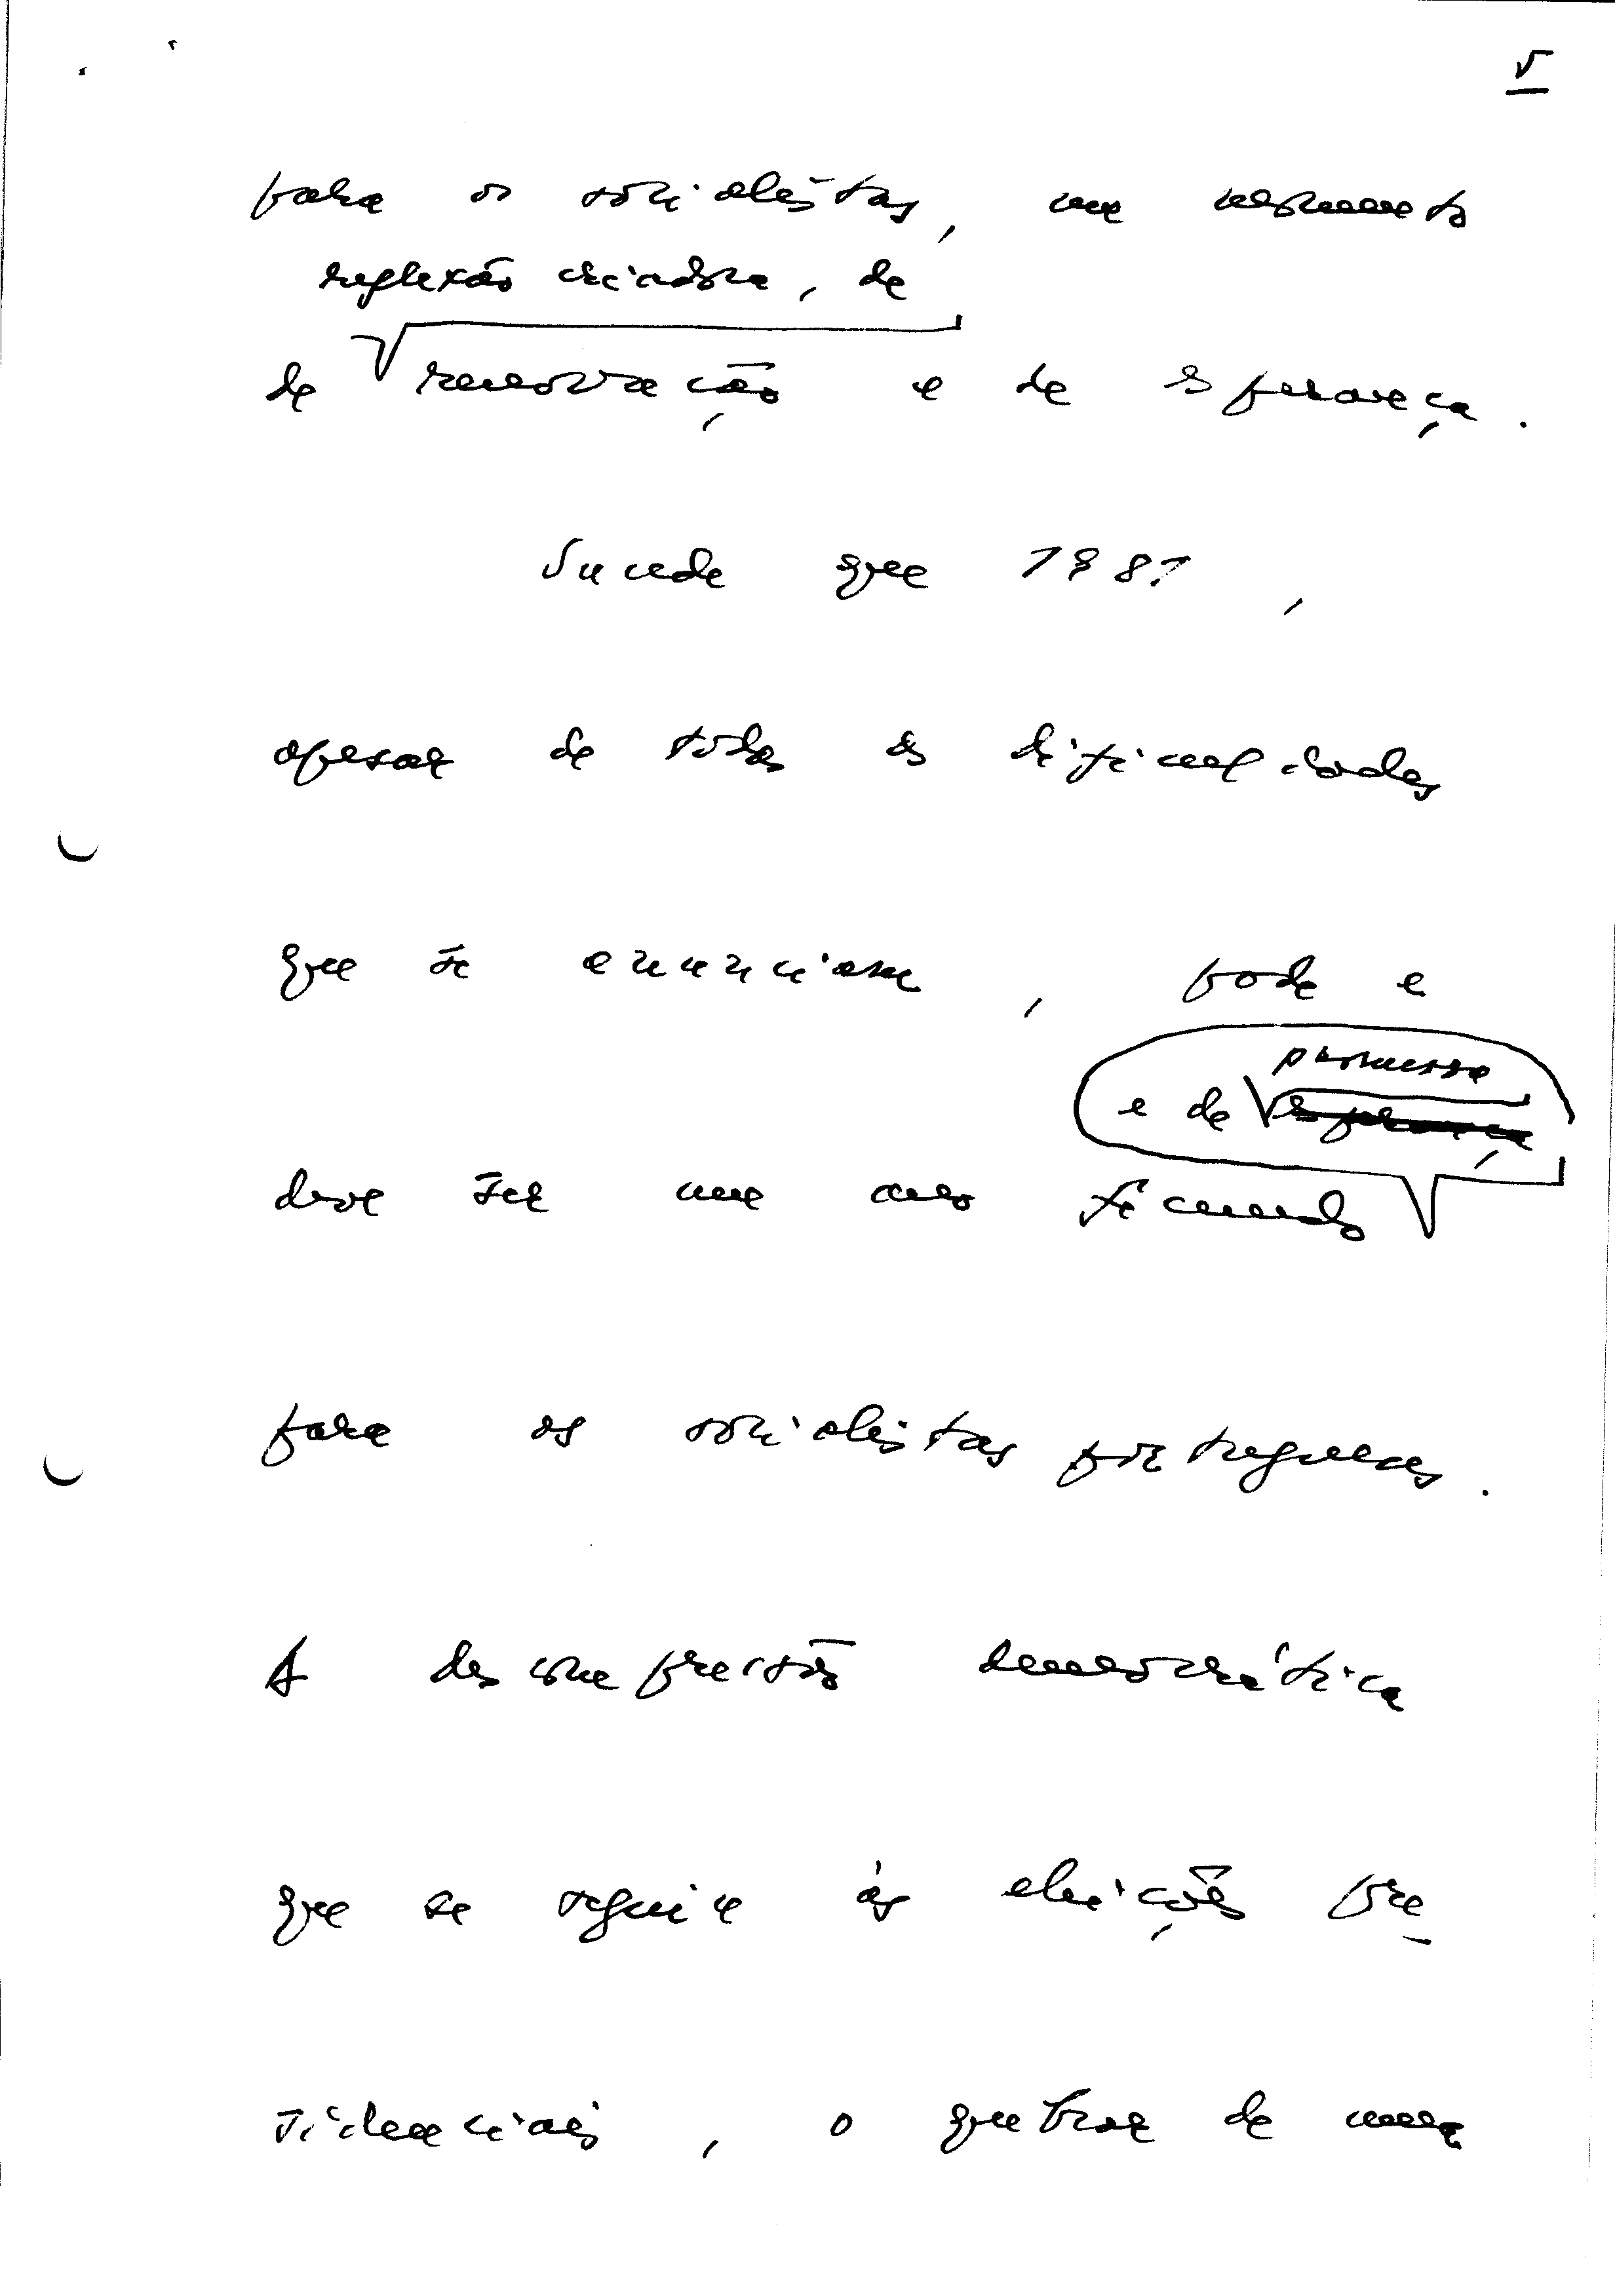 5
para os socialistas, um momento
reflexão criadora, de
de renovação e de esperança.
Sucede que 1981,
apesar de todas as dificuldades
que se enunciam, pode e
promessa
e de esperança
deve ser um ano fecundo
para os socialistas portugueses.
A descompressão democrática
que se seguiu às eleições pre
sidenciais, o quebrar de uma